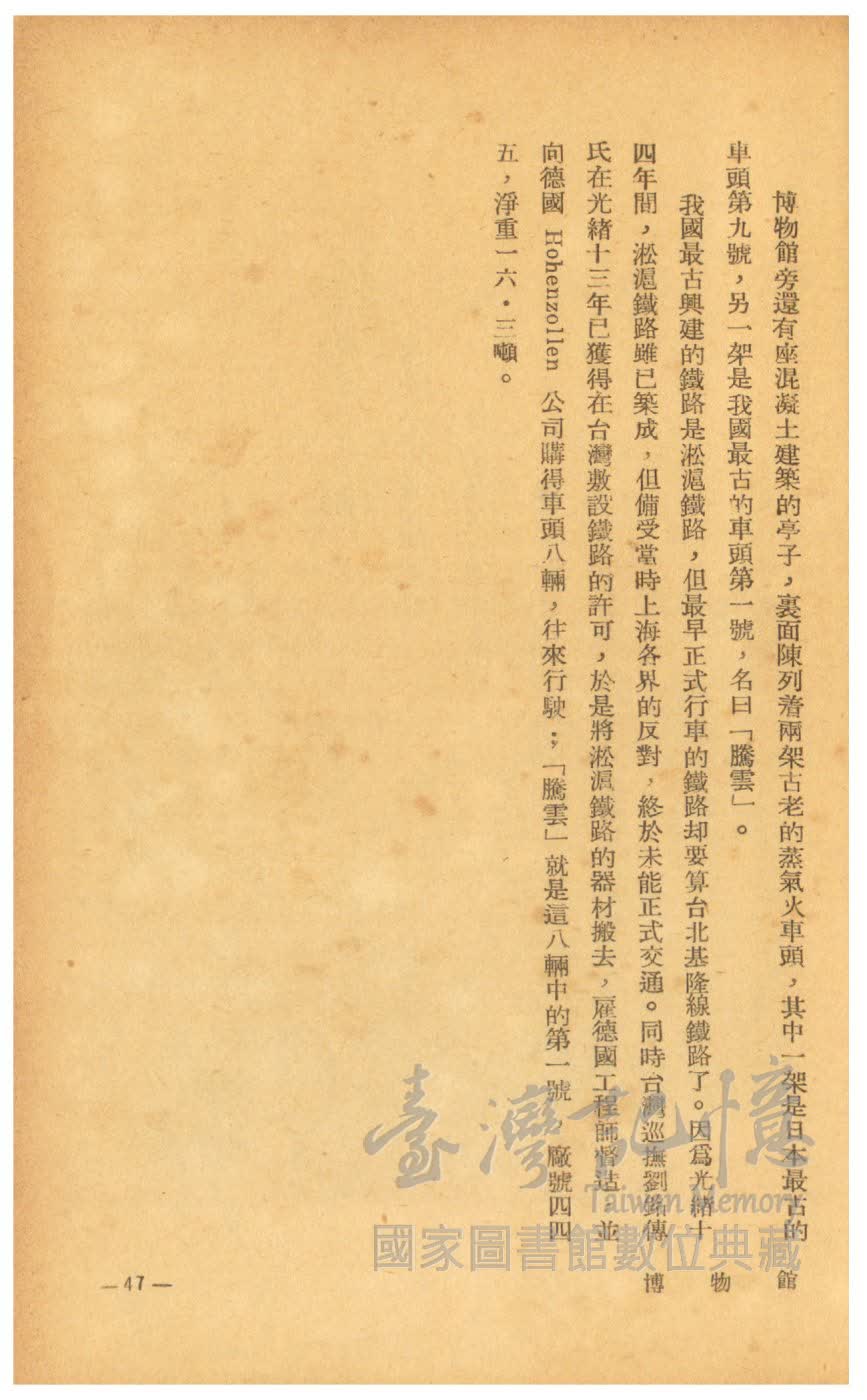 博物館旁還有座混凝土建築的亭子，裏面陳列着兩架古老的蒸氣火車頭，其中一架是日本最古的
車頭第九號，另一架是我國最古的車頭第一號，名曰「騰雲」。
我國最古興建的鐵路是淞滬鐵路，但最早正式行車的鐵路却要算台北基隆線鐵路了。因爲光緒十
四年間，淞滬鐵路雖已築成，但備受當時上海各界的反對，終於未能正式交通。同時台灣巡撫劉銘傳
氏在光緒十三年已獲得在台灣敷設鐵路的許可，於是將淞滬鐵路的器材搬去，雇德國工程師督造，並
向德國 Hohenzollen 公司購得車頭八輛，往來行駛；「騰雲」就是這八輛中的第一號，廠號四四
五，淨重一六・三噸。
博物館
—47—
臺灣記憶
Taiwan Memory
國家圖書館數位典藏